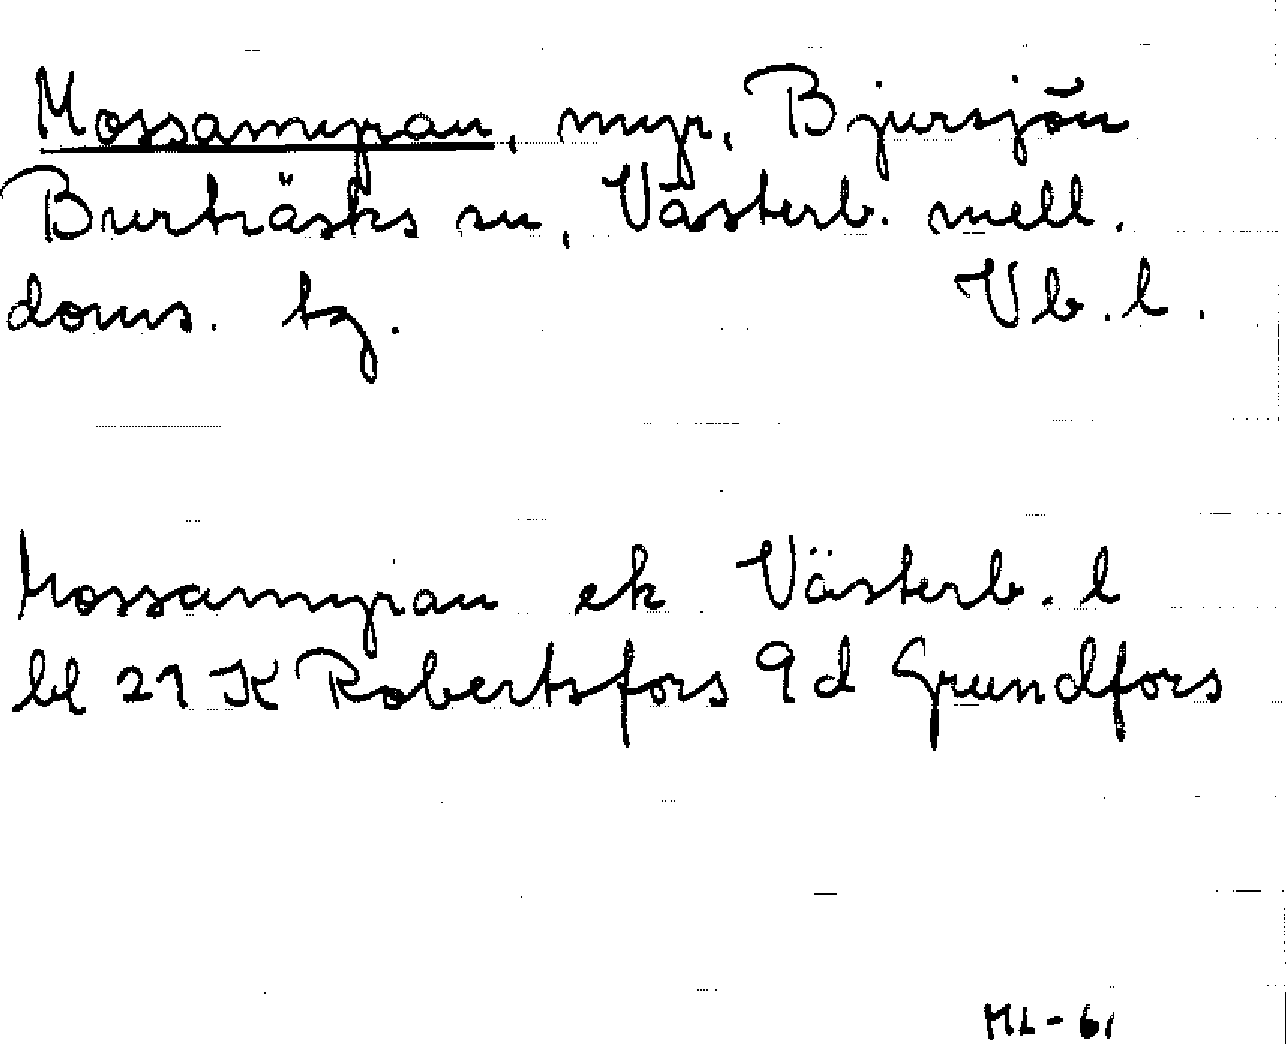 Mossamyran, myr, Bjursjön
Burträsks sn, Västerb. mell.
doms. tg. Vb. l.
Mossamyran ek Västerb. l
bl 21 K Robertsfors 9d Grundfors
ML-61